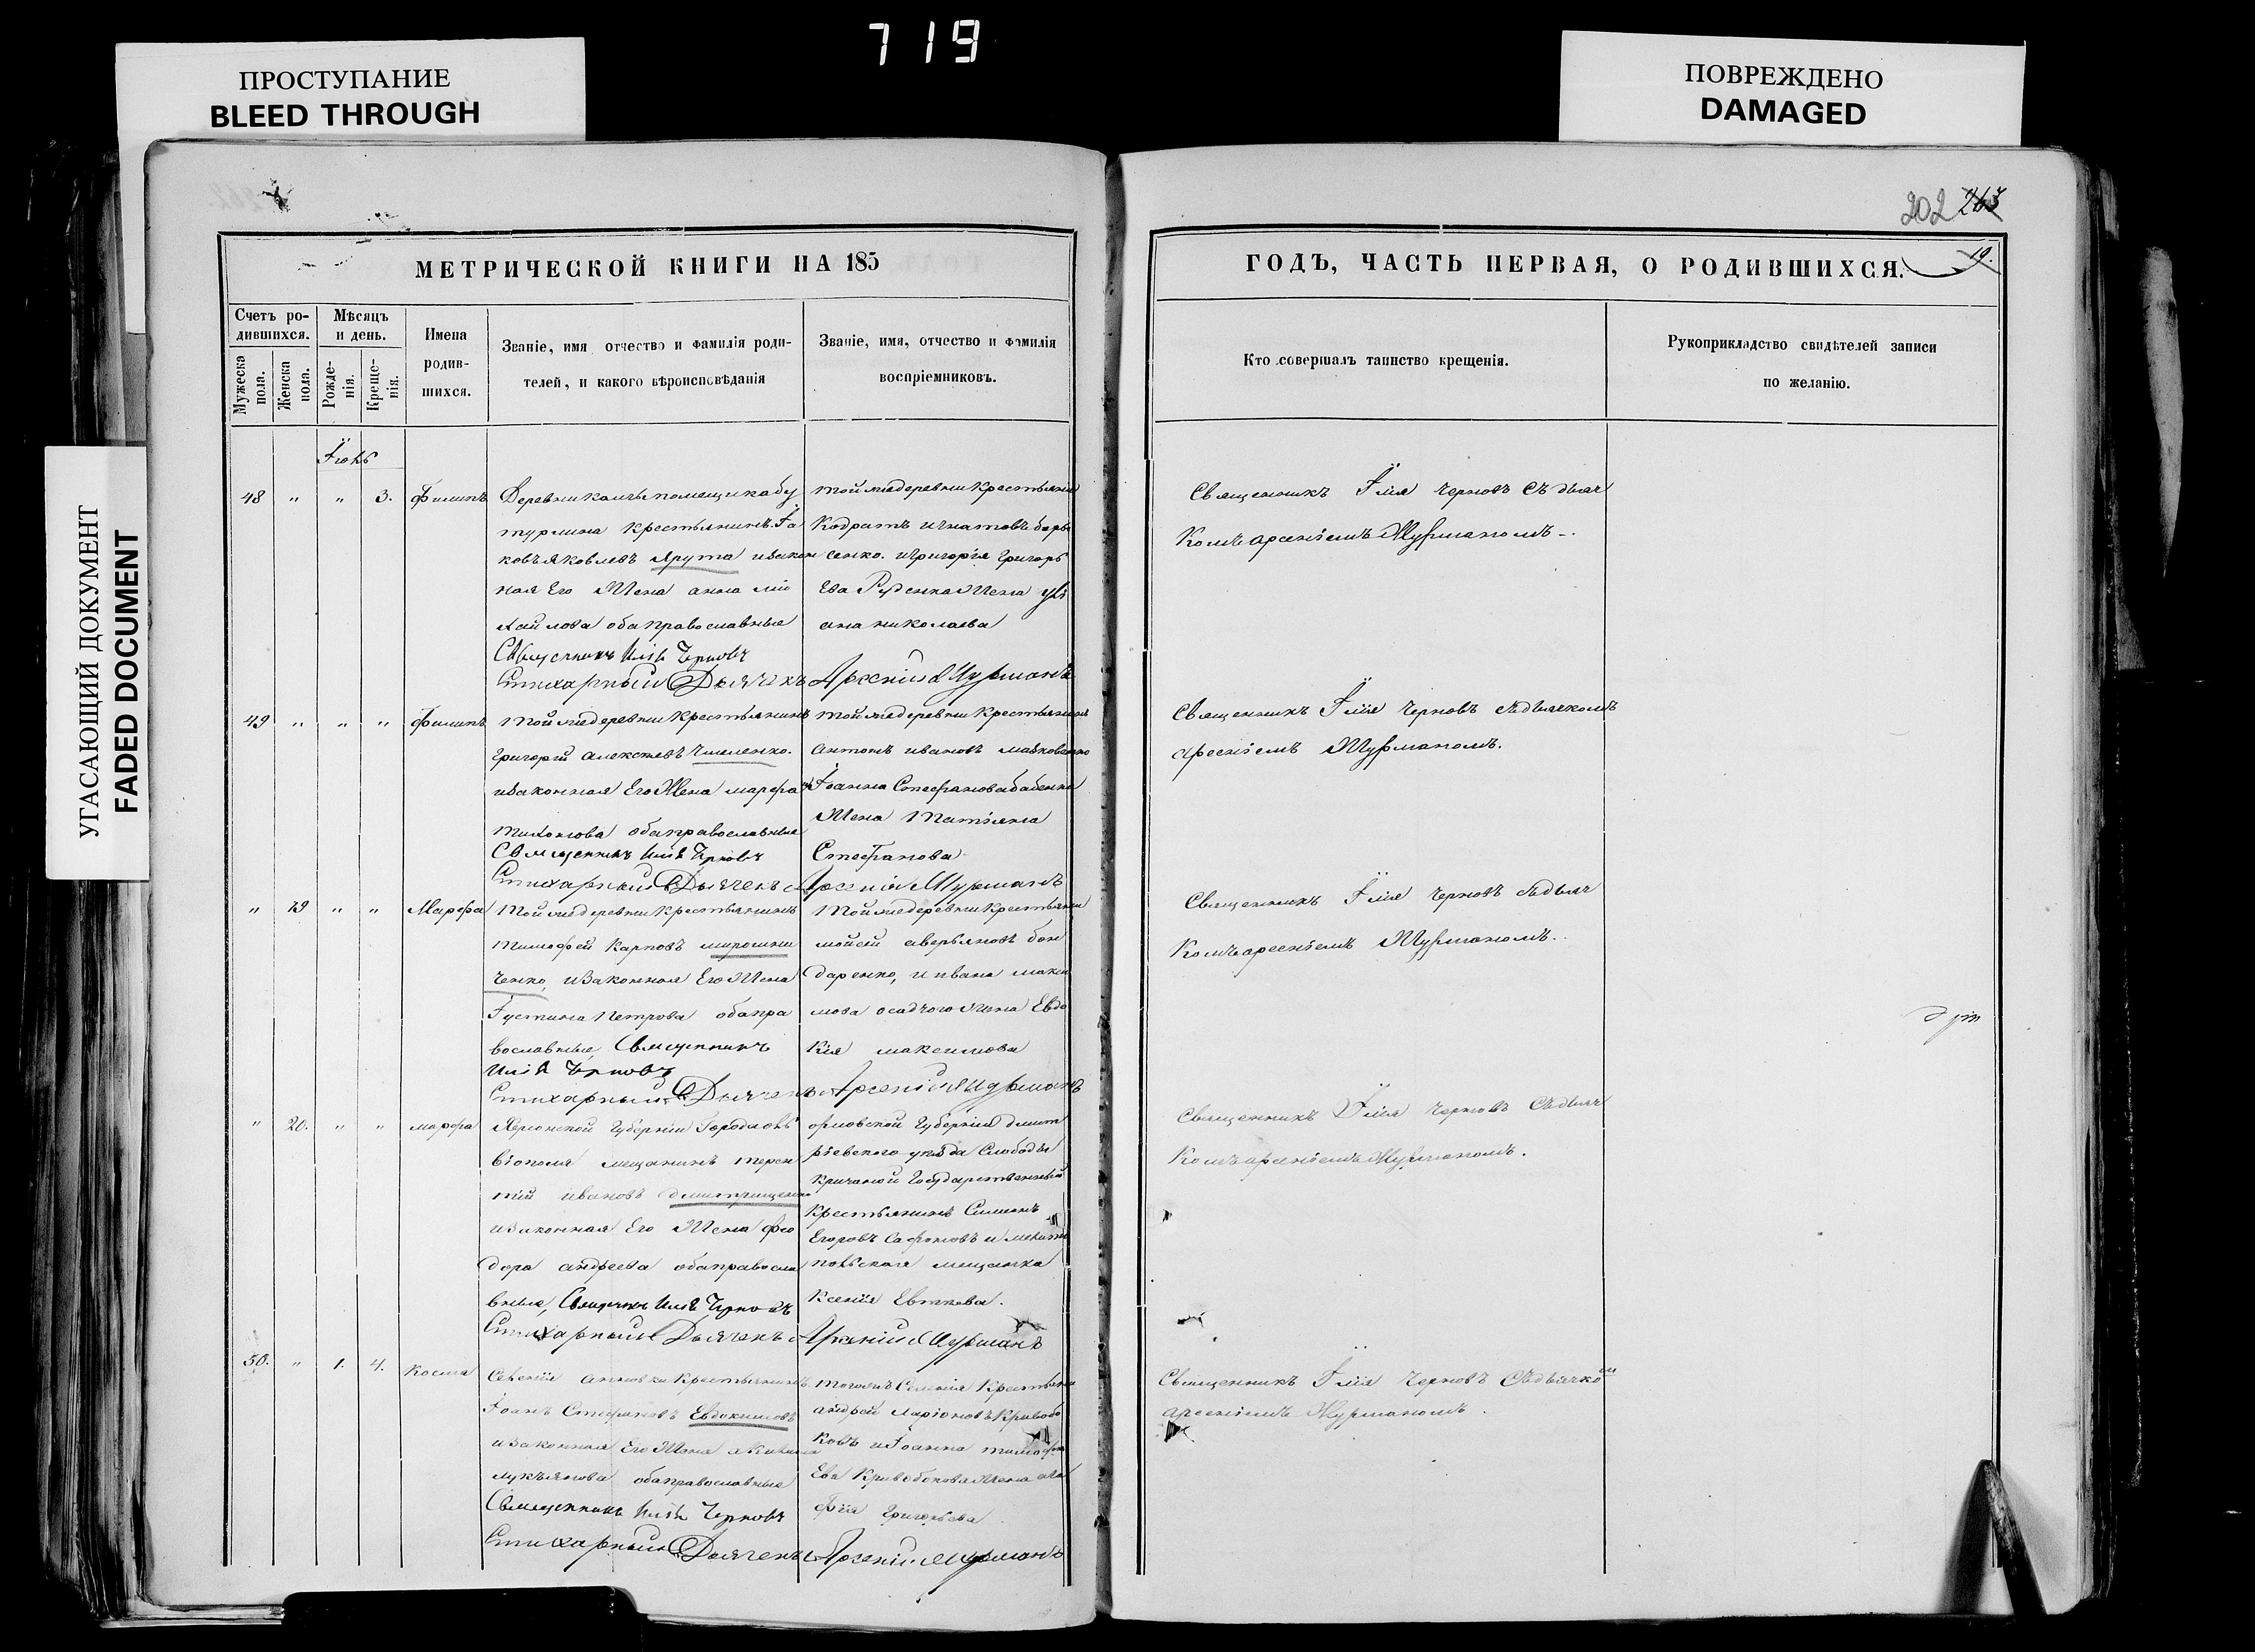 719
ПРОСТУПАНИЕ
BLEED THROUGH
ПОВРЕЖДЕНО
DAMAGED
УГАСАЮЩИЙ ДОКУМЕНТ
FADED DOCUMENT
202 263
19.
МЕТРИЧЕСКОЙ КНИГИ НА 185
ГОДЪ, ЧАСТЬ ПЕРВАЯ, О РОДИВШИХСЯ.
Счетъ ро-
дившихся.
Мужеска
пола.
Женска
пола.
Мѣсяцъ
и день.
Рожде-
нія.
Креще-
нія.
Имена
родив-
шихся.
Званіе, имя отчество и фамилія роди-
телей, и какого вѣроисповѣданія
Званіе, имя, отчество и фамилія
воспріемниковъ.
Кто совершалъ таинство крещенія.
Рукоприкладство свидѣтелей записи
по желанію.
48 " " 3. Филипъ
турлина крестьянинъ Іа
ковъ Яковлевъ Ярута изакон
ная Его Жена анна ми
хайлова обаправославные
Священникъ Илія Черновъ
Стихарный Дьячекъ Арсеній Мурманъ
той жедеревни крестьяни
сенко. иГригорія Григорь
Ева Руденка Жена ули
ана николаева
Священникъ Ілія Черновъ Съ дьяч
Комъ арсеніемъ Мурманомъ.
49 " " " Филипъ
Той жедеревни Крестьянинъ
Григорій алексѣевъ Чмеленко.
изаконная Его Жена марфа
Тихонова обаправославные
Священникъ Илія Черновъ
Стихарный Дьячекъ Арсеній Мурманъ
той жедеревни крестьянинъ
антонъ ивановъ
Іоанна Стефанова бабенка
Жена Татіяна
Стефанова
Священникъ Ілія Черновъ съдьячкомъ
арсеніемъ Мурманомъ.
" 19 " " Марфа
Той жедеревни Крестьянинъ
Тимофей Карповъ мирошни
ченко, изаконная Его Жена
Іустина Петрова обапра
вославные, Священникъ
Илія Черновъ
Стихарный Дьячекъ Арсеній Мурманъ
Той жедеревни Крестьяни
мойсей аверьяновъ бон
даренко, и ивана макси
мова осадчого Жена Евдо
кія максимова
Священникъ Ілія Черновъ съдьяч
Комъ арсеніемъ Мурманомъ.
" 20. " " марфа
Херсонской Губерніи
мещанинъ терен
тій ивановъ дмитрищенко
изаконная Его Жена фео
дора андреева обаправосла
вные, Священникъ Илія Черновъ
Стихарный Дьячекъ Арсеній Мурманъ
орловской Губерніи дмит
ріевского уѣзда Слободы
Государственный
Крестьянинъ Симеонъ
Егоровъ Сафоновъ и мелито
польская мещанка
Ксенія
Священникъ Ілія Черновъ Съдьяч
Комъ арсеніемъ Мурманомъ.
50. " 1. 4. Косма
Селенія анновки Крестьянинъ
Іоанъ Стефановъ Евдокимовъ
изаконная Его Жена
лукъянова обаправославные
Священникъ Илія Черновъ
Стихарный Дьячекъ Арсеній Мурманъ
тогожъ Селенія Крестьяни
андрей Ларіоновъ Кривобо
ковъ иІоанна тимофе
Ева Кривобокова Жена ага
фія Григорьева
Священникъ Ілія Черновъ Съдьячкомъ
арсеніемъ Мурманомъ.